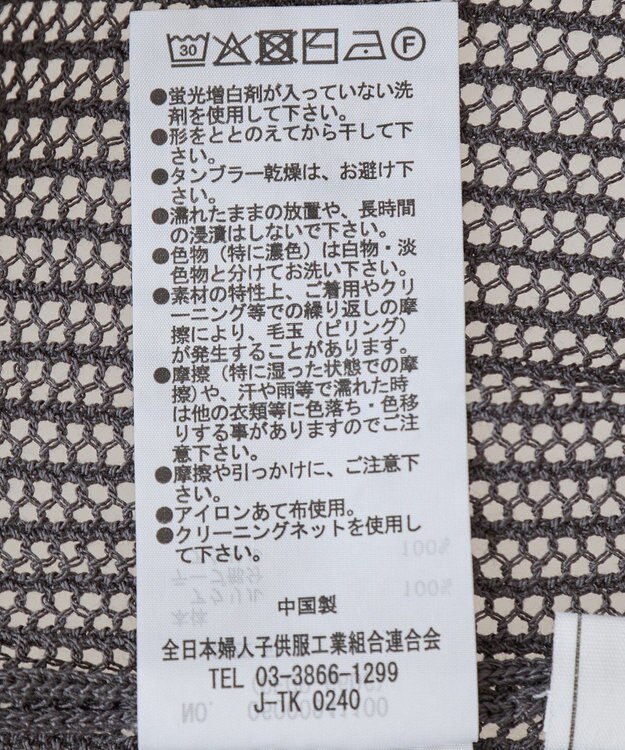 30 F
●蛍光増白剤が入っていない洗
剤を使用して下さい。
●形をととのえてから干して下
さい。
●タンブラー乾燥は、お避け下
さい。
●濡れたままの放置や、長時間
の浸漬はしないで下さい。
●色物（特に濃色）は白物・淡
色物と分けてお洗い下さい。
●素材の特性上、ご着用やクリ
ーニング等での繰り返しの摩
擦により、毛玉（ピリング）
が発生することがあります。
●摩擦（特に湿った状態での摩
擦）や、汗や雨等で濡れた時
は他の衣類等に色落ち・色移
りする事がありますのでご注
意下さい。
●摩擦や引っかけに、ご注意下
さい。
●アイロンあて布使用。
●クリーニングネットを使用し
て下さい。
100%
アクリル 100%
本体
中国製
全日本婦人子供服工業組合連合会
TEL 03-3866-1299
J-TK 0240
NO.